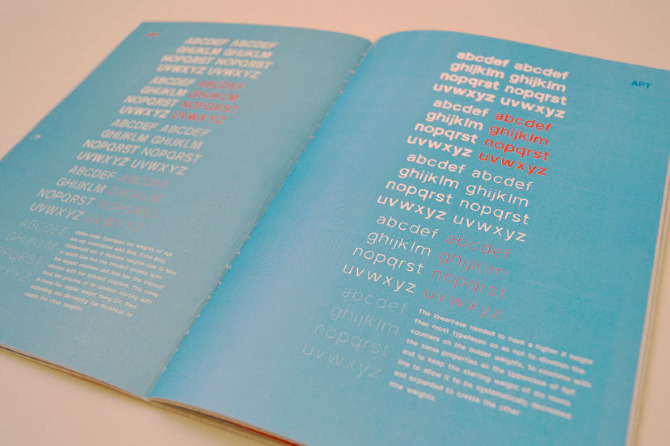 ABCDEF ABCDEF
GHIJKLM GHIJKLM
NOPQRST NOPQRST
UVWXYZ UVWXYZ
ABCDEF ABCDEF
GHIJKLM GHIJKLM
NOPQRST NOPQRST
UVWXYZ UVWXYZ
ABCDEF ABCDEF
GHIJKLM GHIJKLM
NOPQRST NOPQRST
UVWXYZ UVWXYZ
ABCDEF ABCDEF
GHIJKLM GHIJKLM
NOPQRST NOPQRST
UVWXYZ UVWXYZ
ABCDEF
GHIJKLM
NOPQRST
UVWXYZ
APT
abcdef abcdef
ghijklm ghijklm
nopqrst nopqrst
uvwxyz uvwxyz
abcdef abcdef
ghijklm ghijklm
nopqrst nopqrst
uvwxyz uvwxyz
abcdef abcdef
ghijklm ghijklm
nopqrst nopqrst
uvwxyz uvwxyz
abcdef abcdef
ghijklm ghijklm
nopqrst nopqrst
uvwxyz uvwxyz
abcdef
ghijklm
nopqrst
uvwxyz
The lowercase needed to have a higher x height
then most typefaces so as not to diminish the
counters on the bolder weights, to conform with
the same properties as the uppercase of apt
and to keep the starting weight of six mono
line to allow it to be systematically decreased
and expanded to create the other
nine weights.